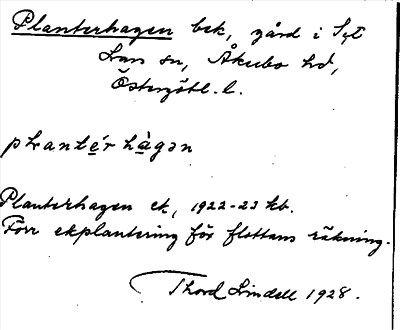 Planterhagen bek, gård i S:t
Lars sn, Åkerbo hd,
Östergötl. l.
plantér hàgən
Planterhagen ek, 1922-23 kb.
Förr ekplantering för flottans räkning.
Thord Lindell 1928.